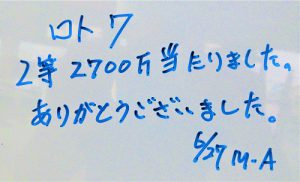 ロト7
2等 2700万当たりました。
ありがとうございました。
6/27 M.A